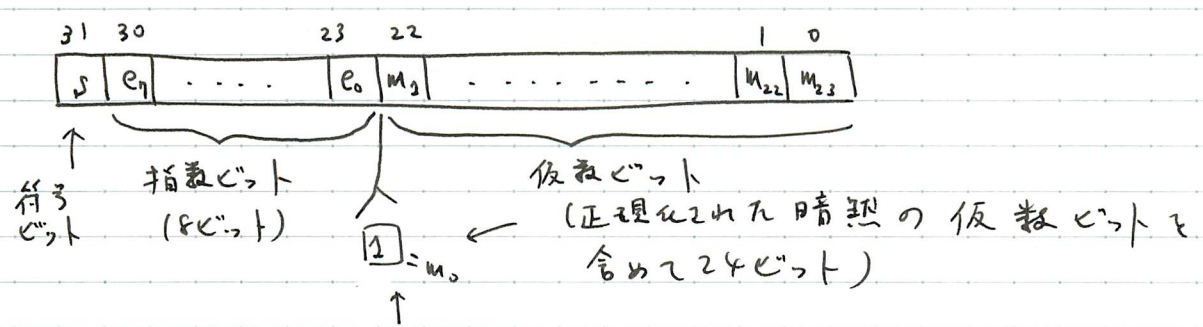 31 30 23 22 1 0
s e₇ ‥‥ e₀ m₁ ‥‥‥‥‥ m₂₂ m₂₃
符号
ビット
指数ビット
(8ビット)
仮数ビット
(正規化された暗黙の仮数ビットを
含めて24ビット)
1 = m₀